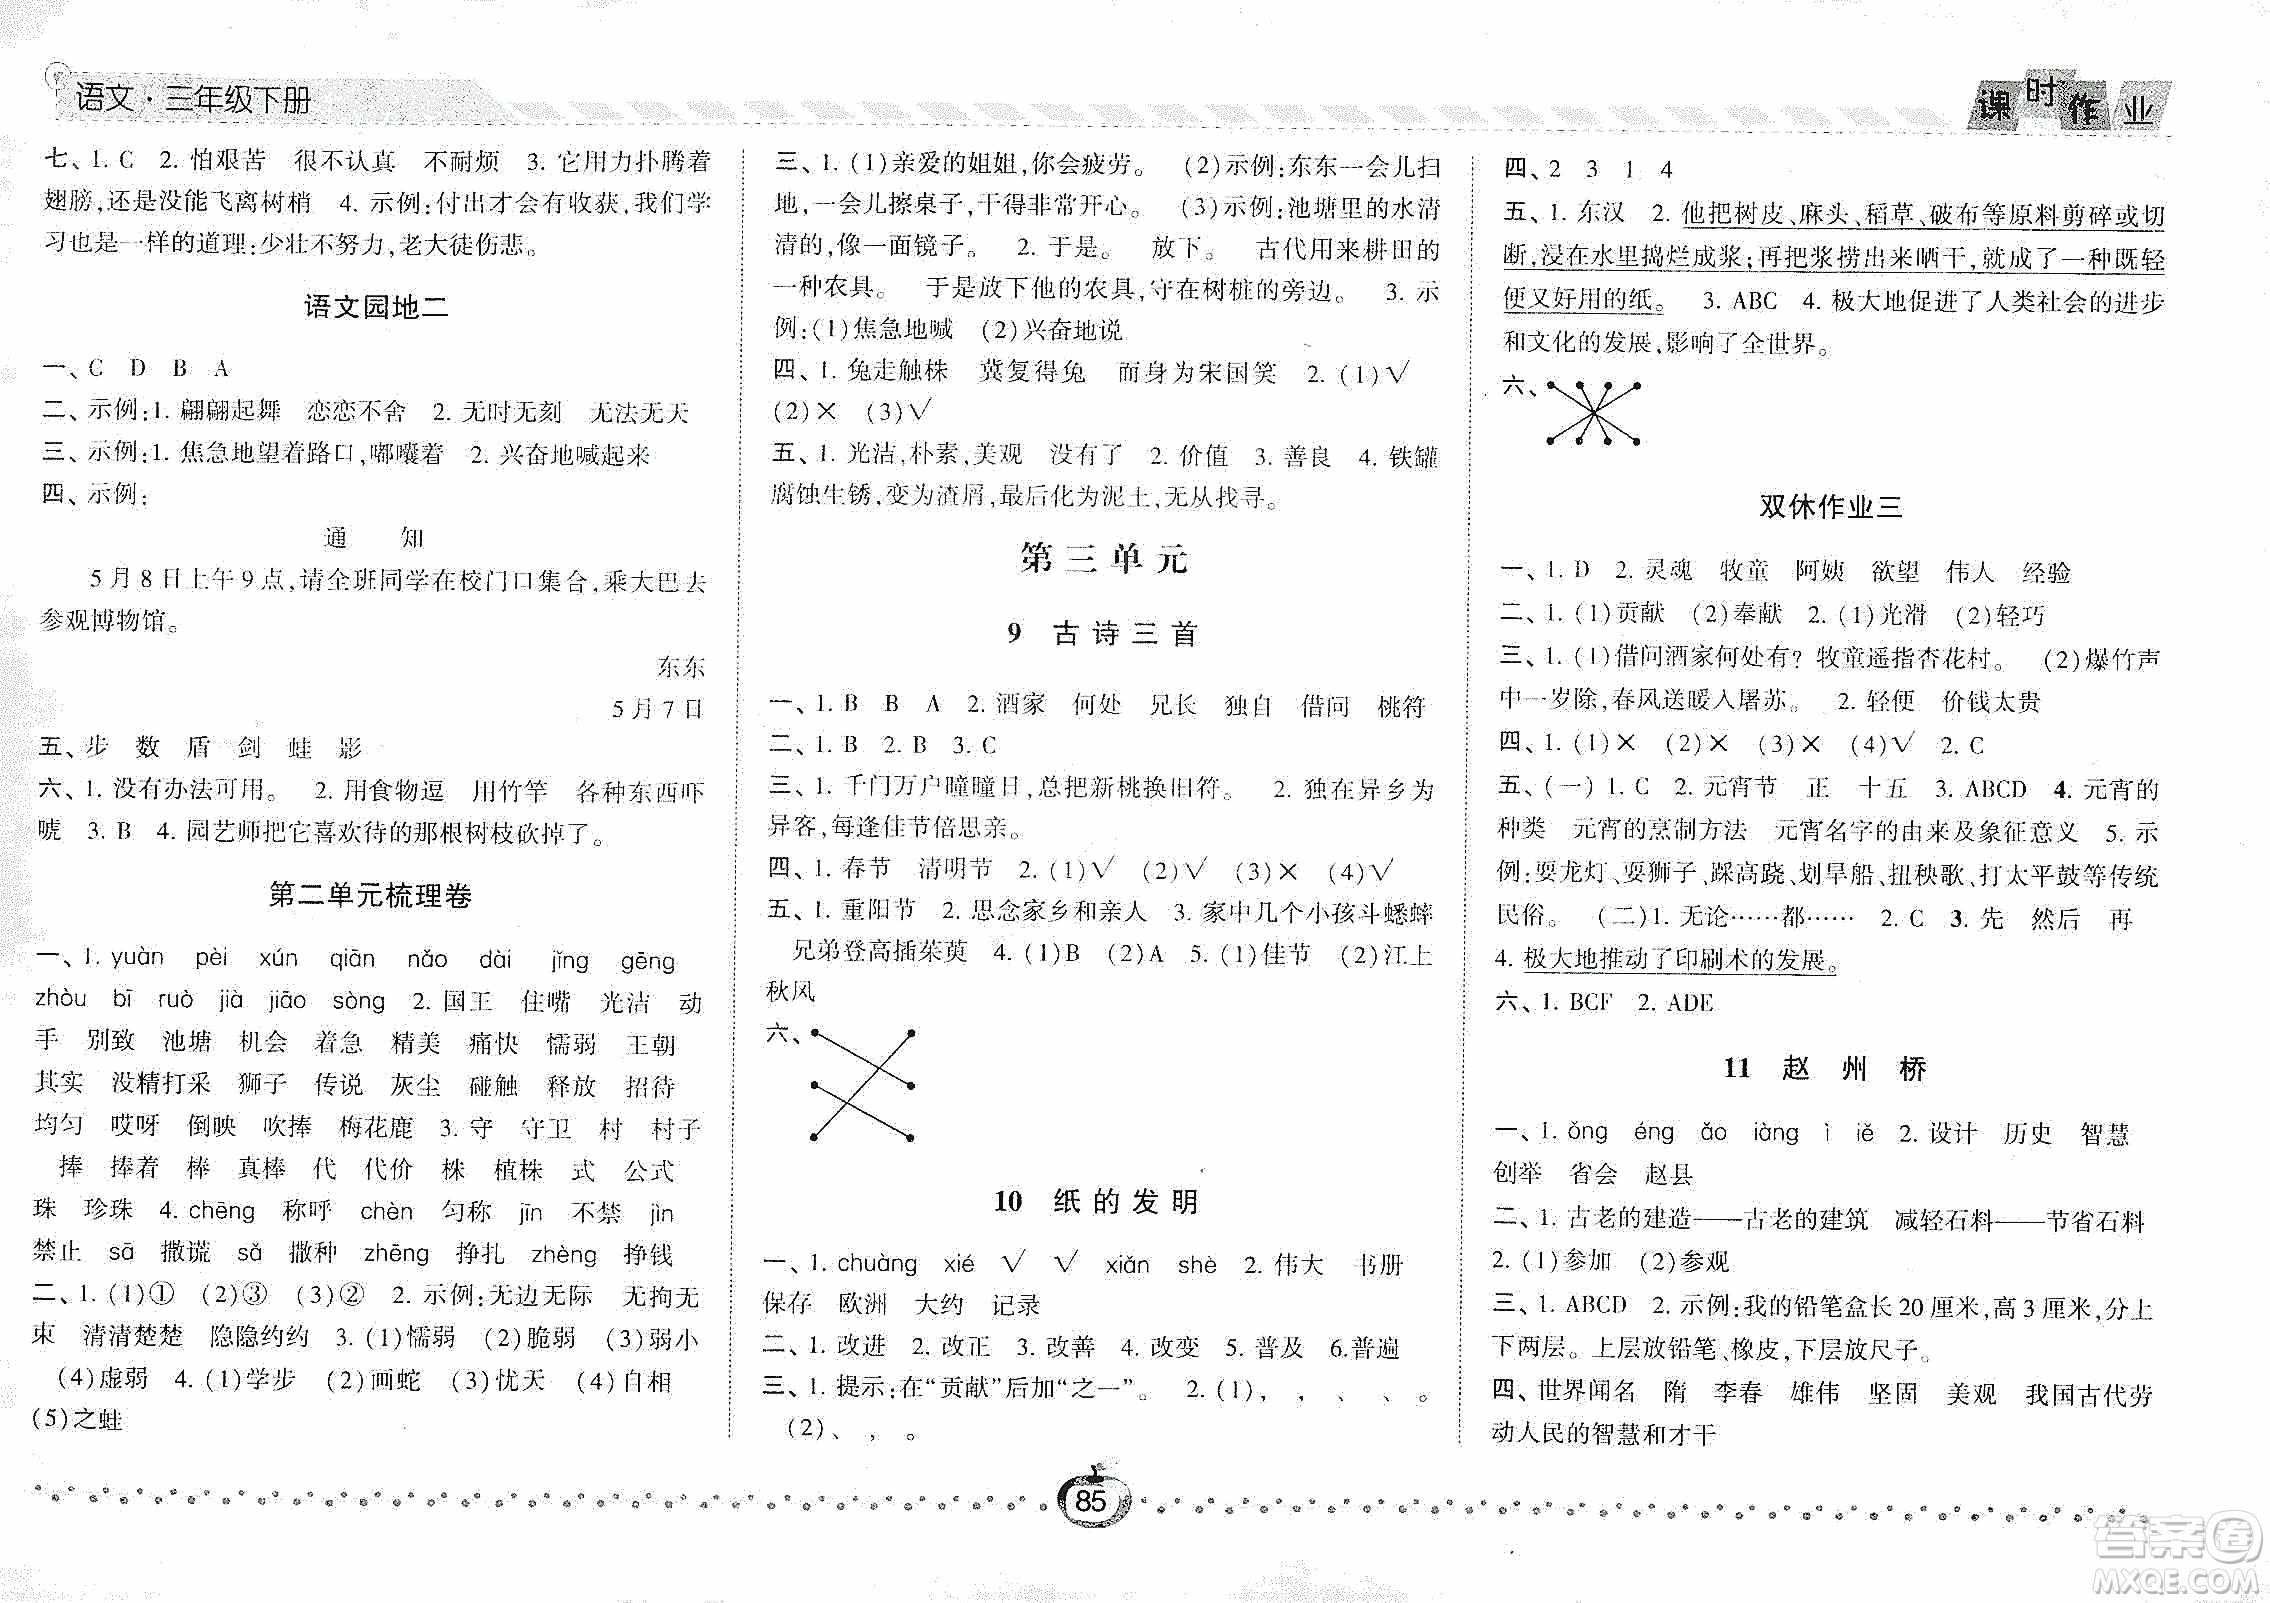 语文·三年级下册
课时作业
七、1. C 2. 怕艰苦 很不认真 不耐烦 3. 它用力扑腾着
翅膀,还是没能飞离树梢 4. 示例:付出才会有收获,我们学
习也是一样的道理:少壮不努力,老大徒伤悲。
语文园地二
一、C D B A
二、示例:1. 翩翩起舞 恋恋不舍 2. 无时无刻 无法无天
三、示例:1. 焦急地望着路口,嘟囔着 2. 兴奋地喊起来
四、示例:
通 知
5月8日上午9点,请全班同学在校门口集合,乘大巴去
参观博物馆。
东东
5月7日
五、步 数 盾 剑 蛙 影
六、1. 没有办法可用。 2. 用食物逗 用竹竿 各种东西吓
唬 3. B 4. 园艺师把它喜欢待的那根树枝砍掉了。
第二单元梳理卷
一、1. yuàn pèi xún qiān nǎo dài jǐng gēng
zhòu bī ruò jià jiāo sòng 2. 国王 住嘴 光洁 动
手 别致 池塘 机会 着急 精美 痛快 懦弱 王朝
其实 没精打采 狮子 传说 灰尘 碰触 释放 招待
均匀 哎呀 倒映 吹捧 梅花鹿 3. 守 守卫 村 村子
捧 捧着 棒 真棒 代 代价 株 植株 式 公式
珠 珍珠 4. chēng 称呼 chèn 匀称 jīn 不禁 jìn
禁止 sā 撒谎 sǎ 撒种 zhēng 挣扎 zhèng 挣钱
二、1. (1)① (2)③ (3)② 2. 示例:无边无际 无拘无
束 清清楚楚 隐隐约约 3. (1)懦弱 (2)脆弱 (3)弱小
(4)虚弱 4. (1)学步 (2)画蛇 (3)忧天 (4)自相
(5)之蛙
三、1. (1)亲爱的姐姐,你会疲劳。 (2)示例:东东一会儿扫
地,一会儿擦桌子,干得非常开心。 (3)示例:池塘里的水清
清的,像一面镜子。 2. 于是。 放下。 古代用来耕田的
一种农具。 于是放下他的农具,守在树桩的旁边。 3. 示
例:(1)焦急地喊 (2)兴奋地说
四、1. 兔走触株 冀复得兔 而身为宋国笑 2. (1)√
(2)× (3)√
五、1. 光洁,朴素,美观 没有了 2. 价值 3. 善良 4. 铁罐
腐蚀生锈,变为渣屑,最后化为泥土,无从找寻。
第三单元
9 古诗三首
一、1. B B A 2. 酒家 何处 兄长 独自 借问 桃符
二、1. B 2. B 3. C
三、1. 千门万户曈曈日,总把新桃换旧符。 2. 独在异乡为
异客,每逢佳节倍思亲。
四、1. 春节 清明节 2. (1)√ (2)√ (3)× (4)√
五、1. 重阳节 2. 思念家乡和亲人 3. 家中几个小孩斗蟋蟀
兄弟登高插茱萸 4. (1)B (2)A 5. (1)佳节 (2)江上
秋风
六、
10 纸的发明
一、1. chuàng xié √ √ xiǎn shè 2. 伟大 书册
保存 欧洲 大约 记录
二、1. 改进 2. 改正 3. 改善 4. 改变 5. 普及 6.普遍
三、1. 提示:在“贡献”后加“之一”。 2. (1), , 、 、 。
(2)、 , 。
四、2 3 1 4
五、1. 东汉 2. 他把树皮、麻头、稻草、破布等原料剪碎或切
断,浸在水里捣烂成浆;再把浆捞出来晒干,就成了一种既轻
便又好用的纸。 3. ABC 4. 极大地促进了人类社会的进步
和文化的发展,影响了全世界。
六、
双休作业三
一、1. D 2. 灵魂 牧童 阿姨 欲望 伟人 经验
二、1. (1)贡献 (2)奉献 2. (1)光滑 (2)轻巧
三、1. (1)借问酒家何处有? 牧童遥指杏花村。 (2)爆竹声
中一岁除,春风送暖入屠苏。 2. 轻便 价钱太贵
四、1. (1)× (2)× (3)× (4)√ 2. C
五、(一)1. C 2. 元宵节 正 十五 3. ABCD 4. 元宵的
种类 元宵的烹制方法 元宵名字的由来及象征意义 5. 示
例:耍龙灯、耍狮子、踩高跷、划旱船、扭秧歌、打太平鼓等传统
民俗。 (二)1. 无论……都…… 2. C 3. 先 然后 再
4. 极大地推动了印刷术的发展。
六、1. BCF 2. ADE
11 赵州桥
一、1. ǒng éng ǎo iàng ì iě 2. 设计 历史 智慧
创举 省会 赵县
二、1. 古老的建造——古老的建筑 减轻石料——节省石料
2. (1)参加 (2)参观
三、1. ABCD 2. 示例:我的铅笔盒长20厘米,高3厘米,分上
下两层。上层放铅笔、橡皮,下层放尺子。
四、世界闻名 隋 李春 雄伟 坚固 美观 我国古代劳
动人民的智慧和才干
85
答案圈
MXQE.COM